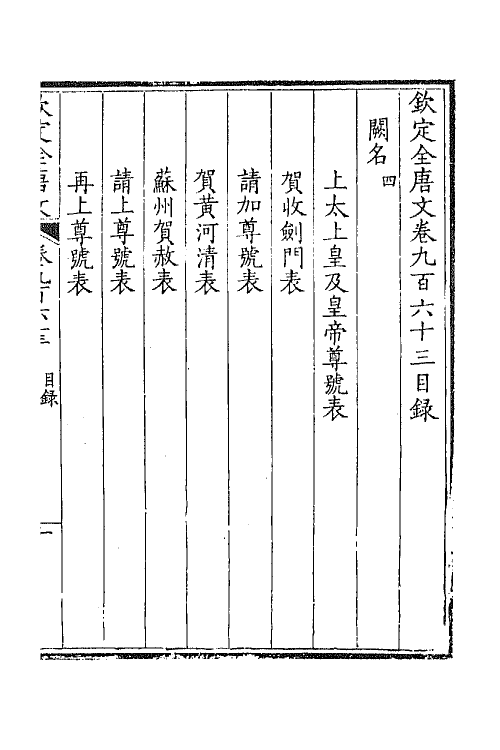 欽定全唐文卷九百六十三目録
闕名四
上太上皇及皇帝尊號表
賀收劍門表
請加尊號表
賀黃河清表
蘇州賀赦表
請上尊號表
再上尊號表
欽定全唐文 卷九百六十三 目録 一